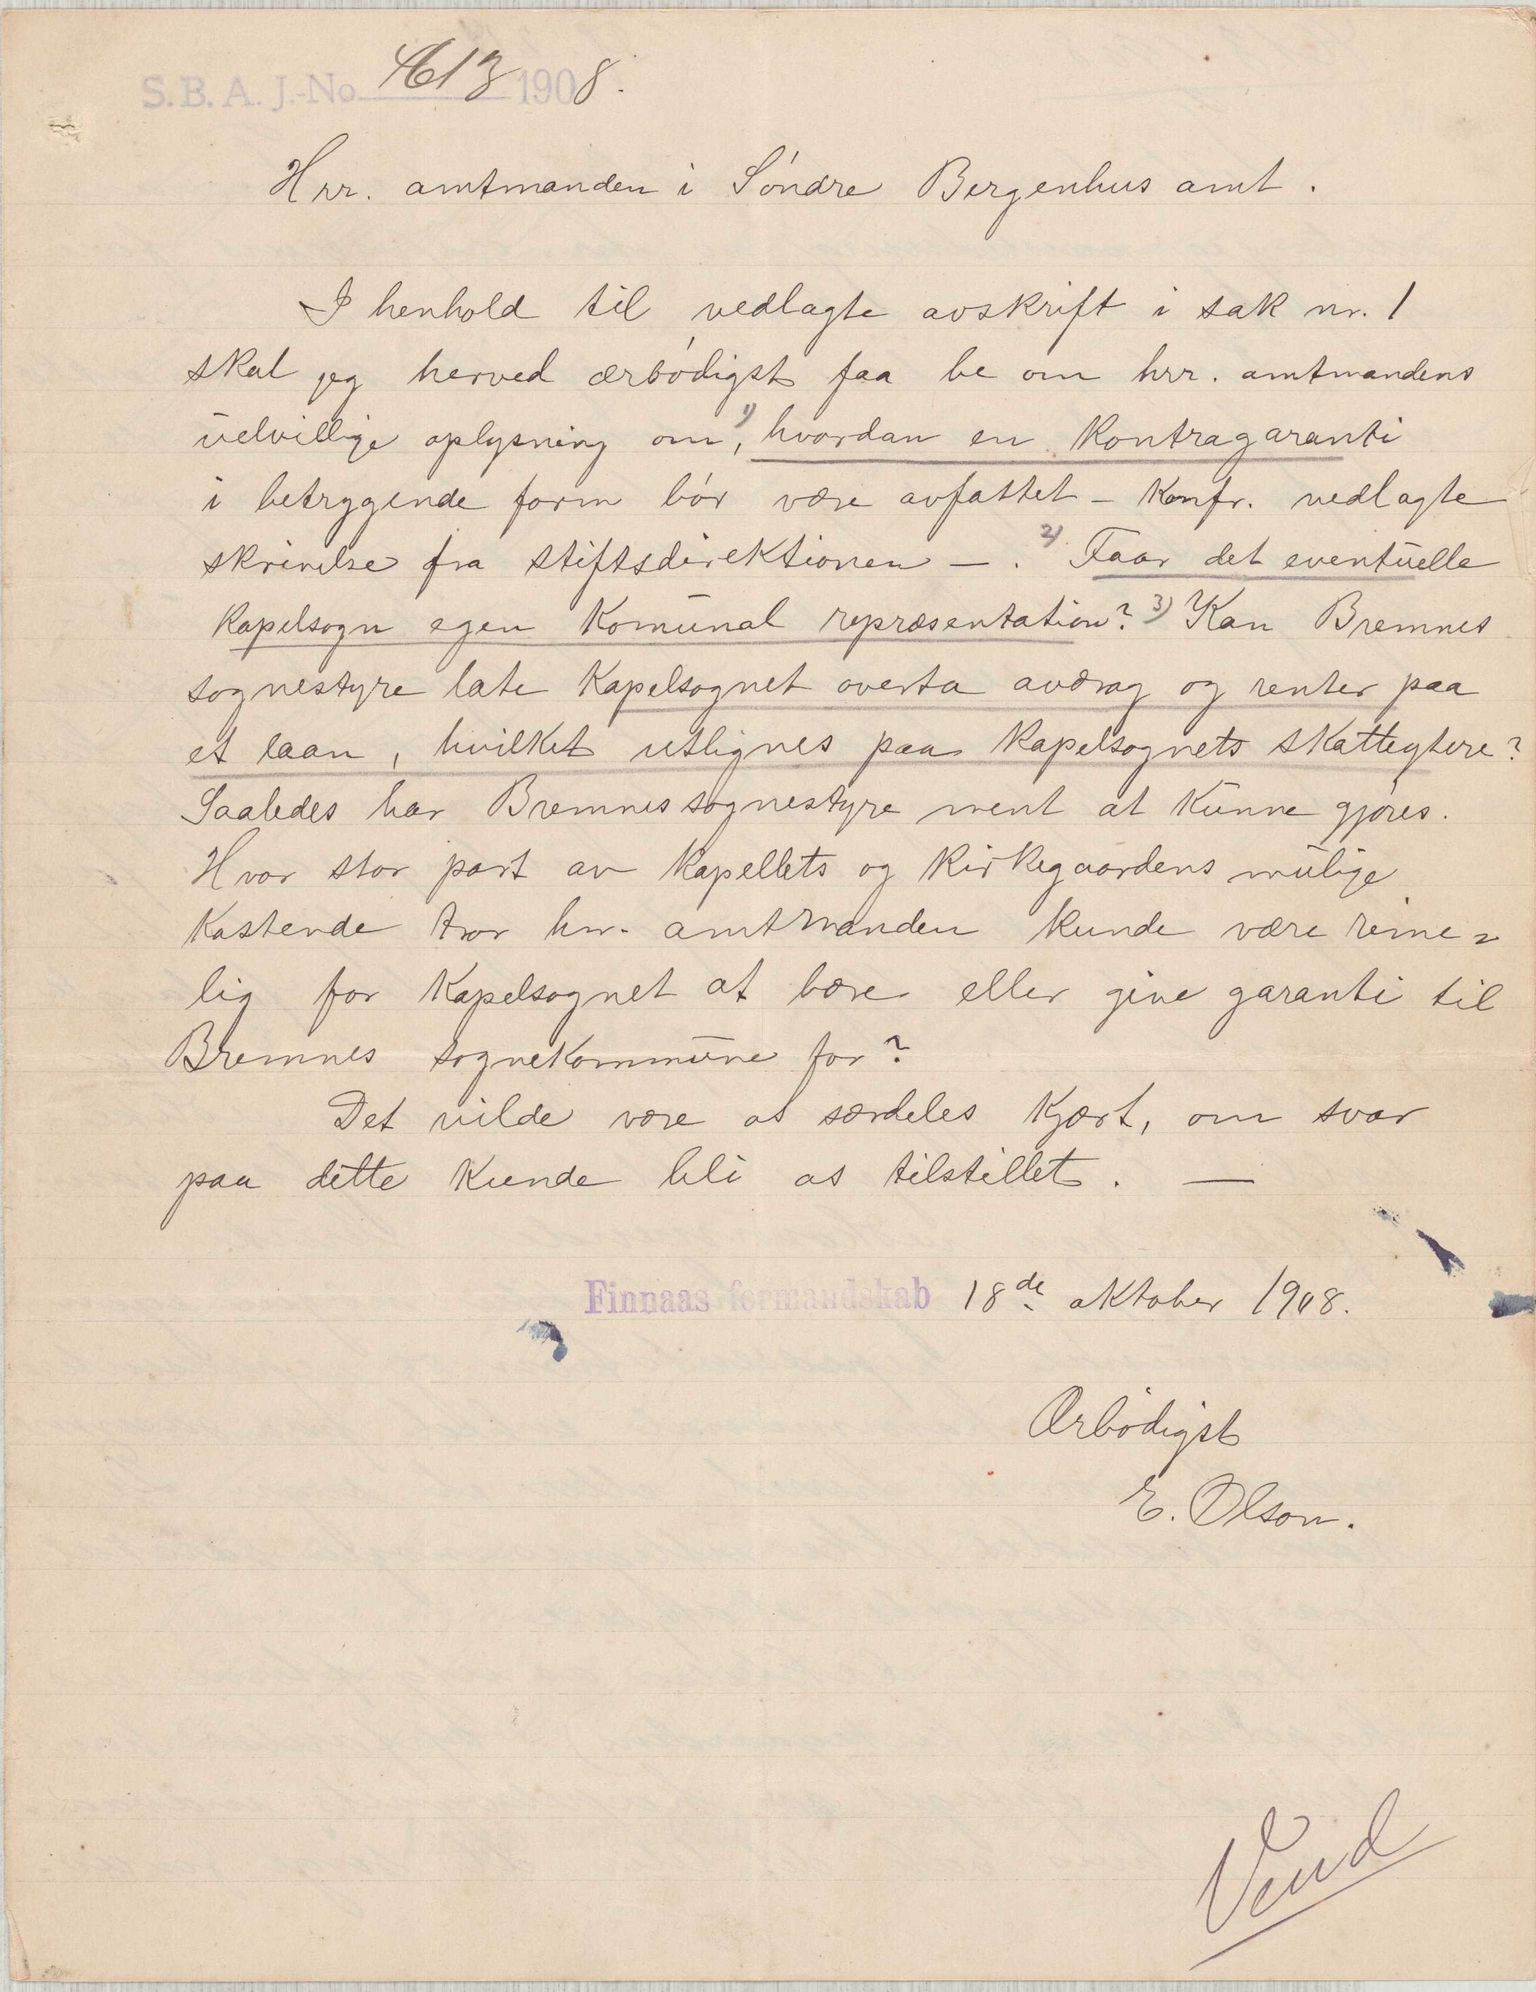 S. B. A. J.-No. 1908.
Hrr. amtmanden i Søndre Bergenhus amt.
I henhold til vedlagte avskrift i sak nr. 1
skal jeg herved ærbødigst faa be om hrr. amtmandens
velvillige oplysning om, 1) hvordan en Kontragaranti
i betryggende form bør være avfattet – Konfr. vedlagte
skrivelse fra stiftsdirektionen –. 2) Faar det eventuelle
Kapelsogn egen Komunal repræsentation? 3) Kan Bremnes
sognestyre late Kapelsognet overta avdrag og renter paa
et laan, hvilket utlignes paa Kapelsognets skatteytere?
Saaledes har Bremnes sognestyre ment at Kunne gjøres.
Hvor stor part av Kapellets og Kirkegaardens mulige
Kostende tror hrr. amtmanden Kunde være rime=
lig for Kapelsognet at bære eller give garanti til
Bremnes sognekommune for?
Det vilde være os særdeles Kjært, om svar
paa dette Kunde bli os tilstillet. —
Finnaas formandskab 18de oktober 1908.
Ærbødigst
E. Olson.
Vend